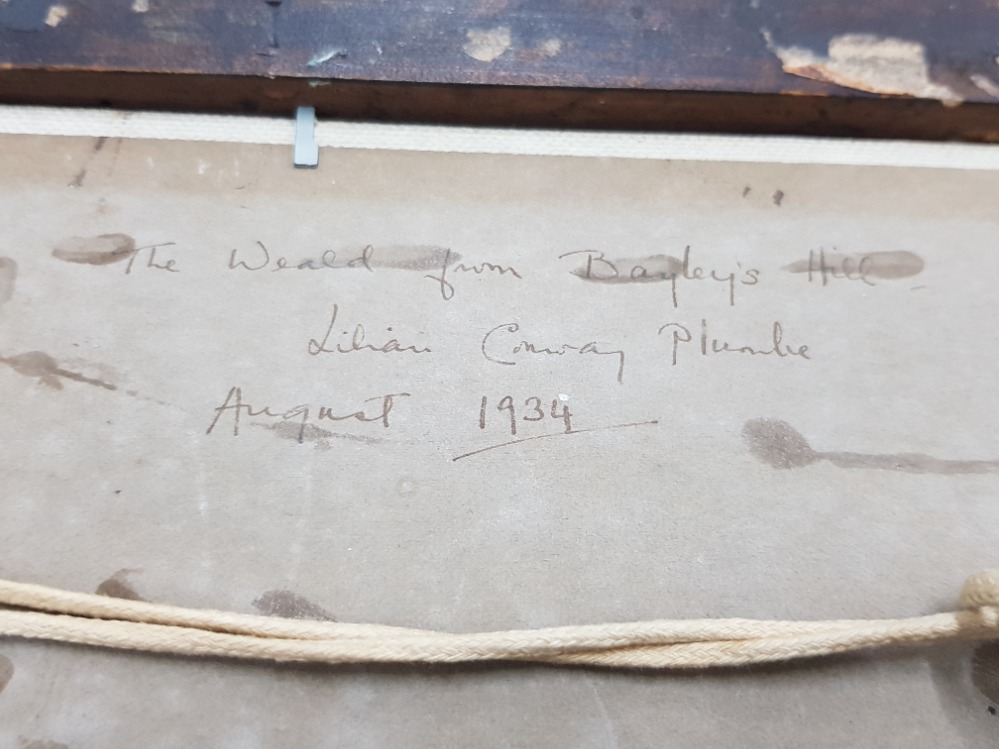 The Weald from Bayley's Hill
Lilian Conway Plumbe
August 1934